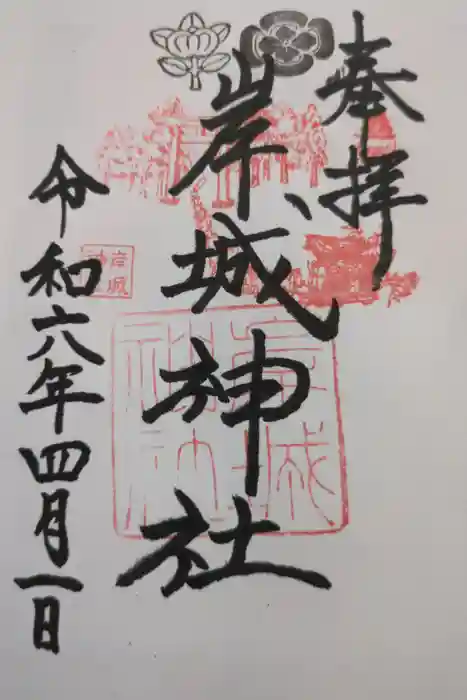 奉拝
岸城神社
令和六年四月一日
岸城神社